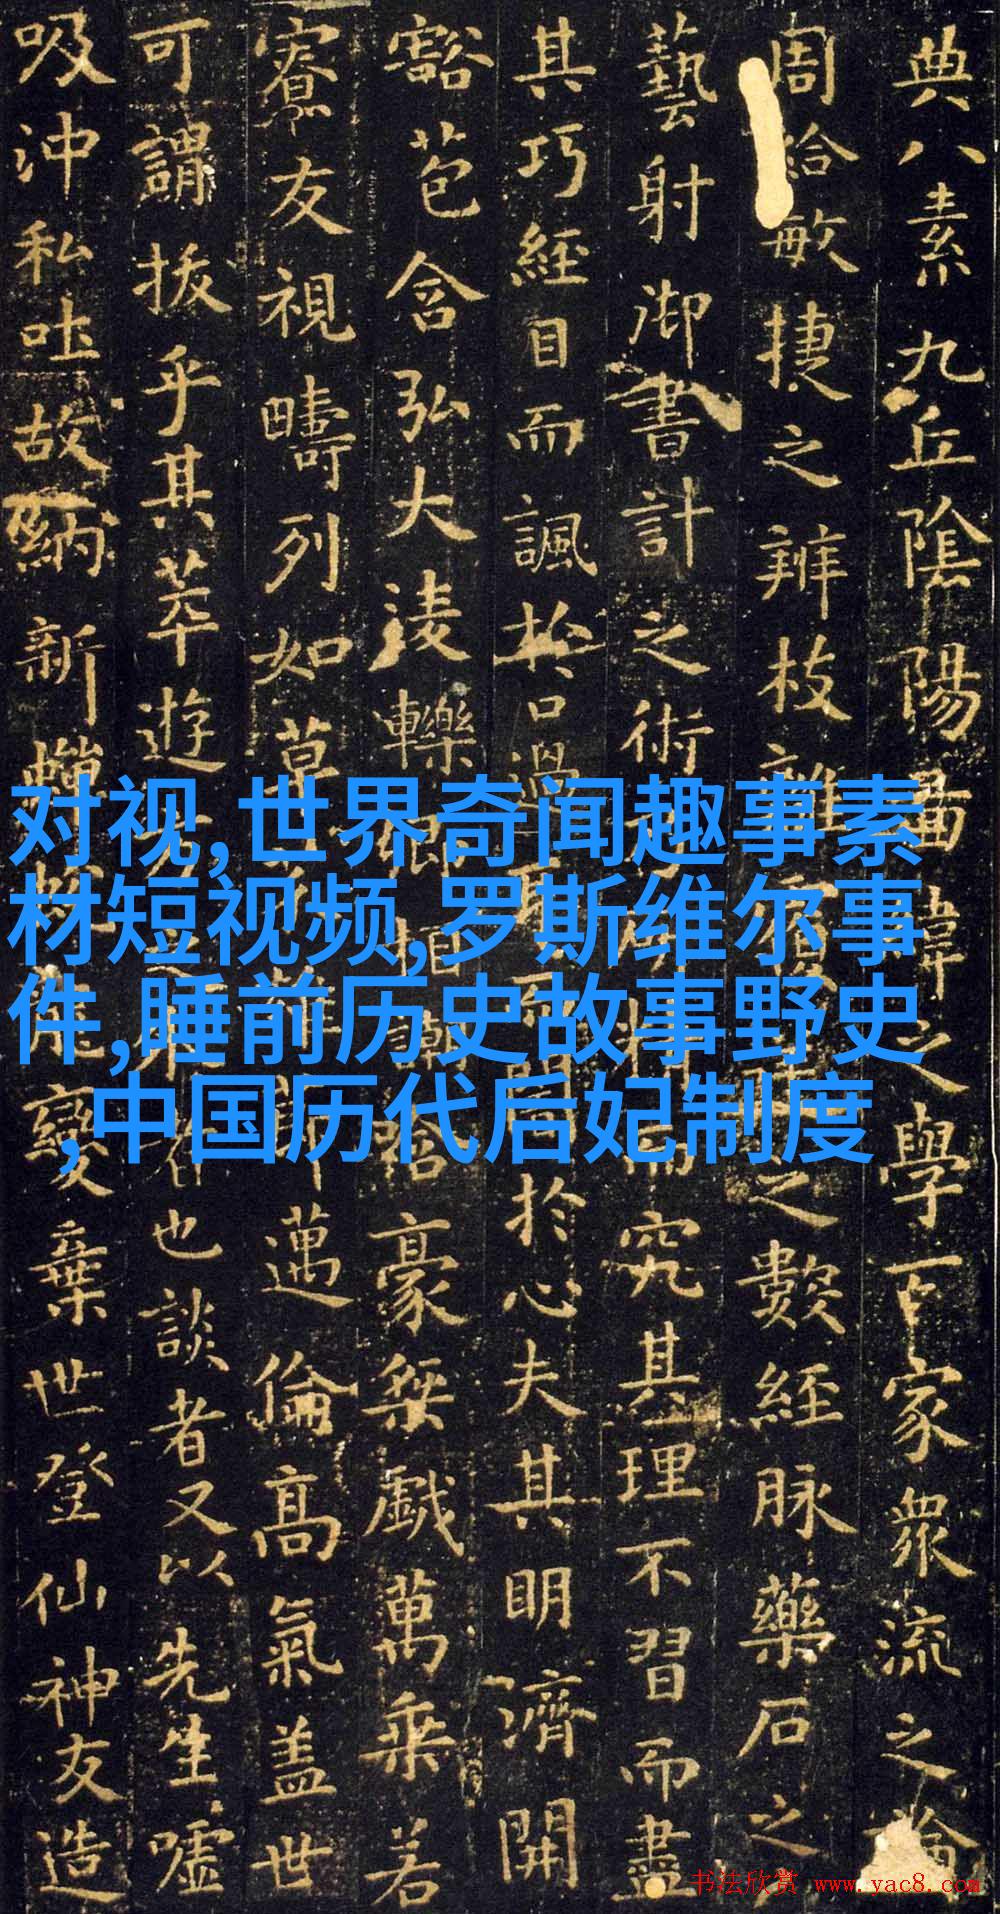 典八素九丘陰陽啚緯之學百家衆流之論
周給敏捷之辨枝離之數經脉藥石之
藝射御書計之術而究其理不習而盡
其巧經目而諷於口過於心夫其明濟開
豁苞含弘大淩轢相哈豪桀戲萬乘若
寮友視疇列如草邁倫高氣盖世
可謂拔乎其萃遊也談者又以先生噓
吸沖和吐故納新變棄世登仙神友造
对视,世界奇闻趣事素
材短视频,罗斯维尔事
件,睡前历史故事野史
,中国历代后妃制度
书法欣赏 www.yac8.com